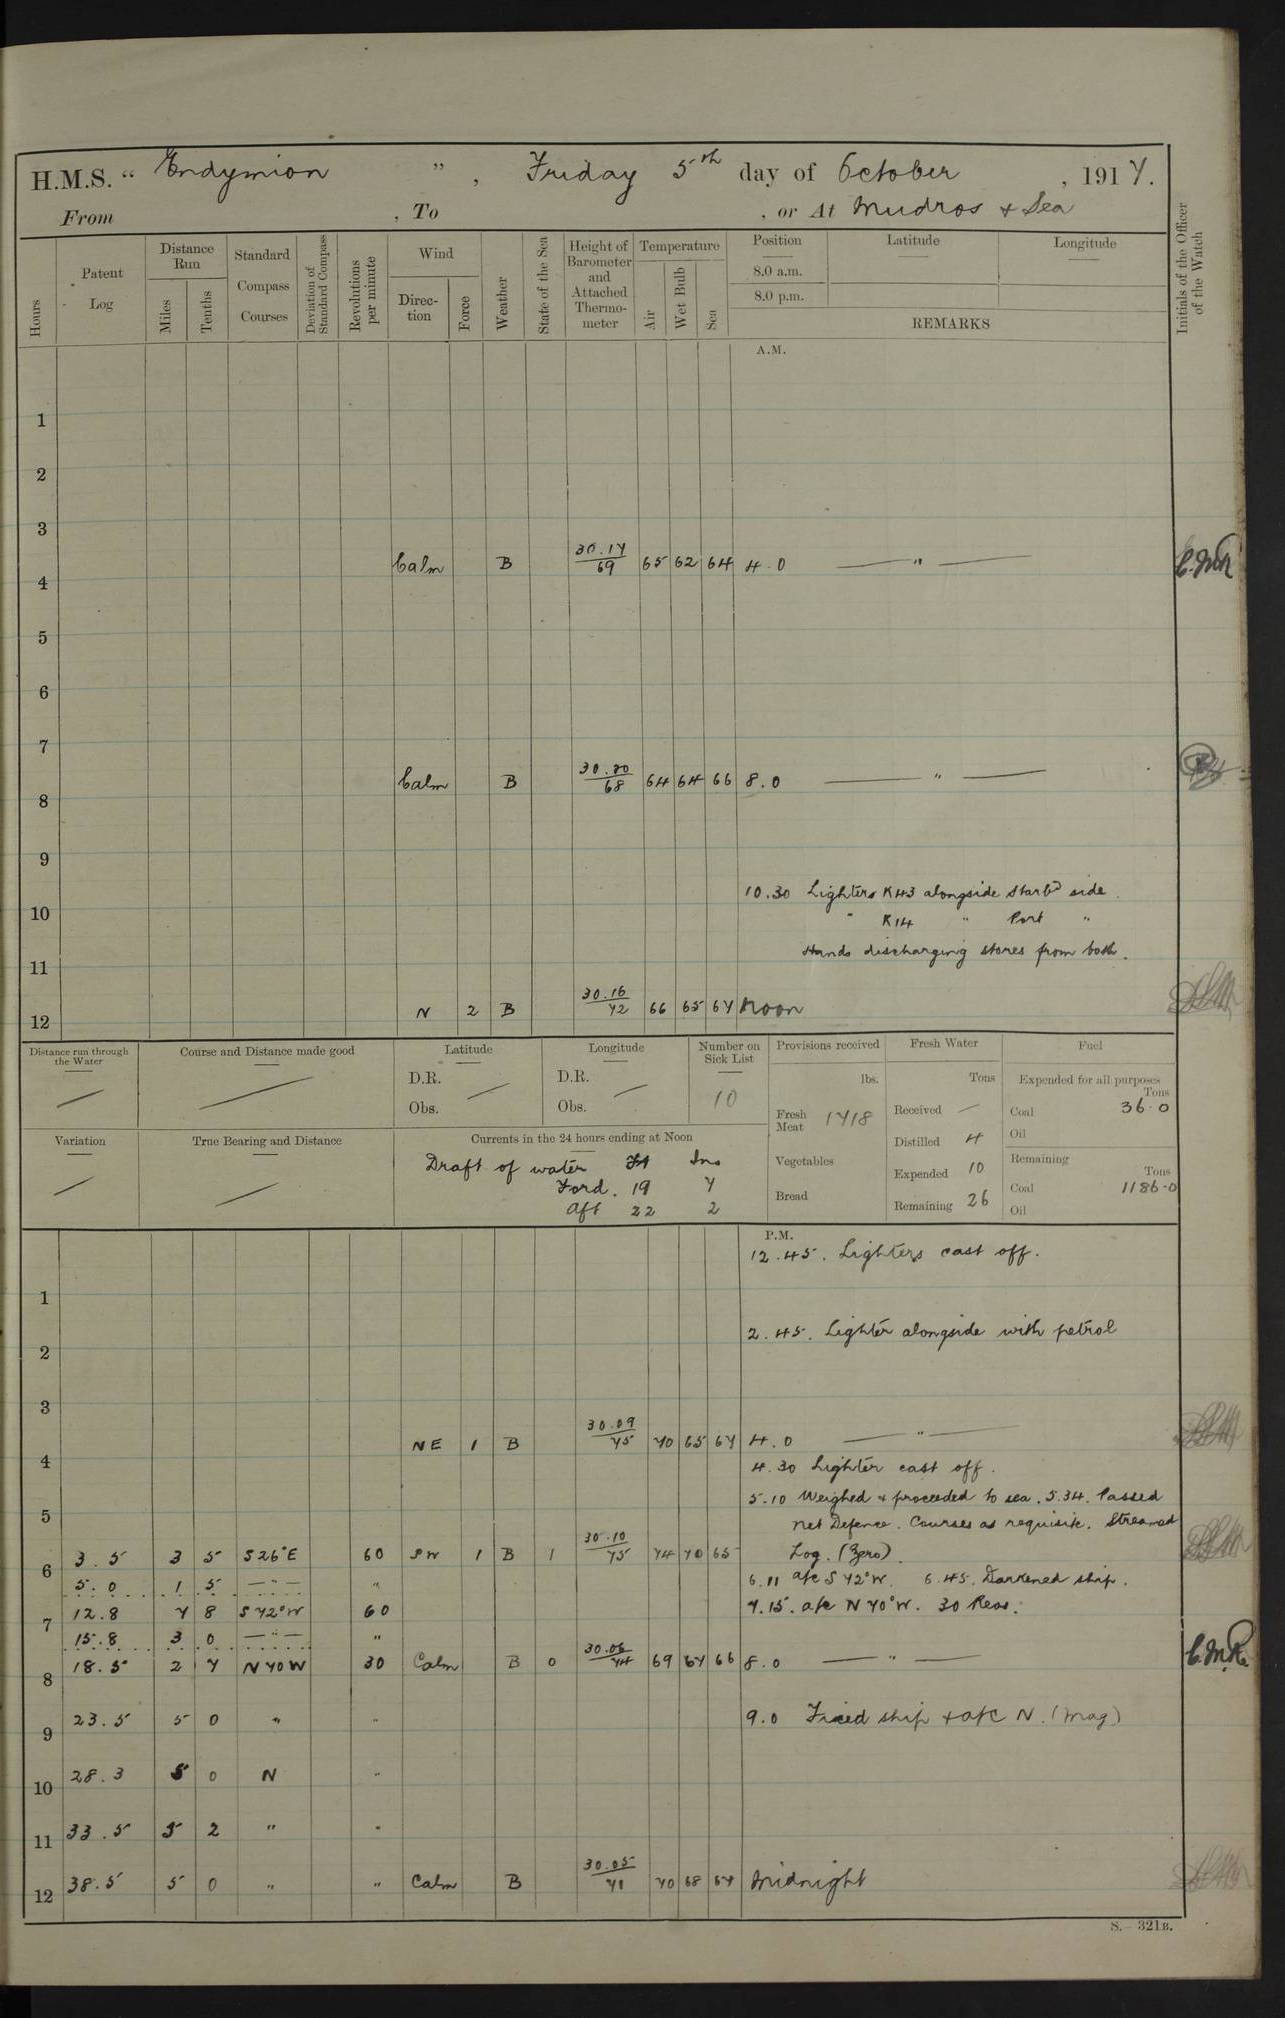 H.M.S. " Endymion " , Friday 5th day of October , 1917.
From , To , or At Mudros & Sea
Hours
Patent Log
Distance Run
Miles
Tenths
Standard Compass Courses
Deviation of Standard Compass
Revolutions per minute
Wind
Direc-tion
Force
Weather
State of the Sea
Height of Barometer and Attached Thermo-meter
Temperature
Air
Wet Bulb
Sea
Position
8.0 a.m.
8.0 p.m.
Latitude
Longitude
REMARKS
Initials of the Officer of the Watch
A.M.
1
2
3
4 Calm B 30.17/69 65 62 64 4.0 — " —
5
6
7
8 Calm B 30.20/68 64 64 66 8.0 — " —
9
10.30 Lighters K43 alongside Starbd side
10 " K14 " Port "
11 Hands discharging stores from both.
12 N 2 B 30.16/72 66 65 67 Noon
Distance run through the Water
Course and Distance made good
Latitude
D.R.
Obs.
Longitude
D.R.
Obs.
Number on Sick List
10
Provisions received
lbs.
Fresh Meat 1718
Vegetables
Bread
Fresh Water
Tons
Received —
Distilled 4
Expended 10
Remaining 26
Fuel
Expended for all purposes
Tons
Coal 36.0
Oil
Remaining
Tons
Coal 1186.0
Oil
Variation
True Bearing and Distance
Currents in the 24 hours ending at Noon
Draft of water Ft Ins
Ford. 19 7
Aft 22 2
P.M.
12.45. Lighters cast off.
1
2.45. Lighter alongside with petrol
2
3
4 NE 1 B 30.09/75 70 65 67 4.0 — " —
4.30 Lighter cast off.
5.10 Weighed & proceeded to sea. 5.34. Passed
5 Net Defence. Courses as requisite. Streamed
6 3.5 3 5 S26°E 60 SW 1 B 1 30.10/75 74 70 65 Log. (Zero).
5.0 1 5 — " — " 6.11 a/c S 72°W. 6.45. Darkened ship.
7 12.8 7 8 S 72°W 60 7.15. a/c N 70°W. 30 Revs.
15.8 3 0 — " — "
8 18.5 2 7 N 70 W 30 Calm B 0 30.06/74 69 67 66 8.0 — " —
9 23.5 5 0 " " 9.0 Fixed ship & a/c N. (Mag)
10 28.3 5 0 N "
11 33.5 5 2 " "
12 38.5 5 0 " " Calm B 30.05/71 70 68 67 Midnight
S.—321B.